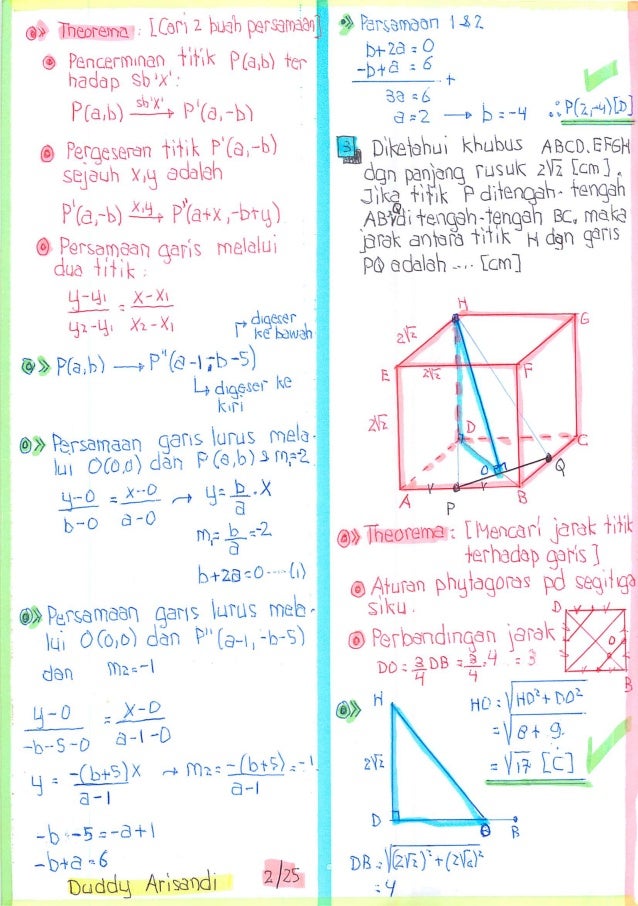 Theorema : [Cari 2 buah persamaan]
Pencerminan titik P(a,b) ter
hadap sb 'x' :
P(a,b) sb 'x' → P'(a,-b)
Pergeseran titik P'(a,-b)
sejauh x,y adalah
P'(a,-b) x,y → P''(a+x,-b+y)
Persamaan garis melalui
dua titik :
y-y₁ = x-x₁
y₂-y₁ x₂-x₁
digeser
ke bawah
P(a,b) → P''(a-1;-b-5)
digeser ke
kiri
Persamaan garis lurus mela-
lui O(0,0) dan P(a,b) m₁=2
y-0 = x-0 → y= b . x
b-0 a-0 a
m₁= b =-2
a
b+2a=0....(1)
Persamaan garis lurus mela-
lui O(0,0) dan P''(a-1,-b-5)
dan m₂=-1
y-0 = x-0
-b-5-0 a-1-0
y = -(b+5)x → m₂= -(b+5) =-1
a-1 a-1
-b-5=-a+1
-b+a=6
Duddy Arisandi
2/25
Persamaan 1&2
b+2a=0
-b+a=6
+
3a=6
a=2 → b=-4 ∴ P(2,-4)[D]
3 Diketahui khubus ABCD.EFGH
dgn panjang rusuk 2√2 [cm].
Jika titik P ditengah-tengah
AB, Q di tengah-tengah BC, maka
jarak antara titik H dgn garis
PQ adalah .... [cm]
H
G
2√2
E
2√2
F
2√2
D
C
O
Q
A
P
B
Theorema : [Mencari jarak titik
terhadap garis]
Aturan phytagoras pd segitiga
siku.
D
Perbandingan jarak
O
DO = 3 DB = 3 . 4 = 3
4 4
B
H
HO = √HD²+DO²
= √8+9
2√2
= √17 [C]
D
O
B
DB = √(2√2)²+(2√2)²
= 4